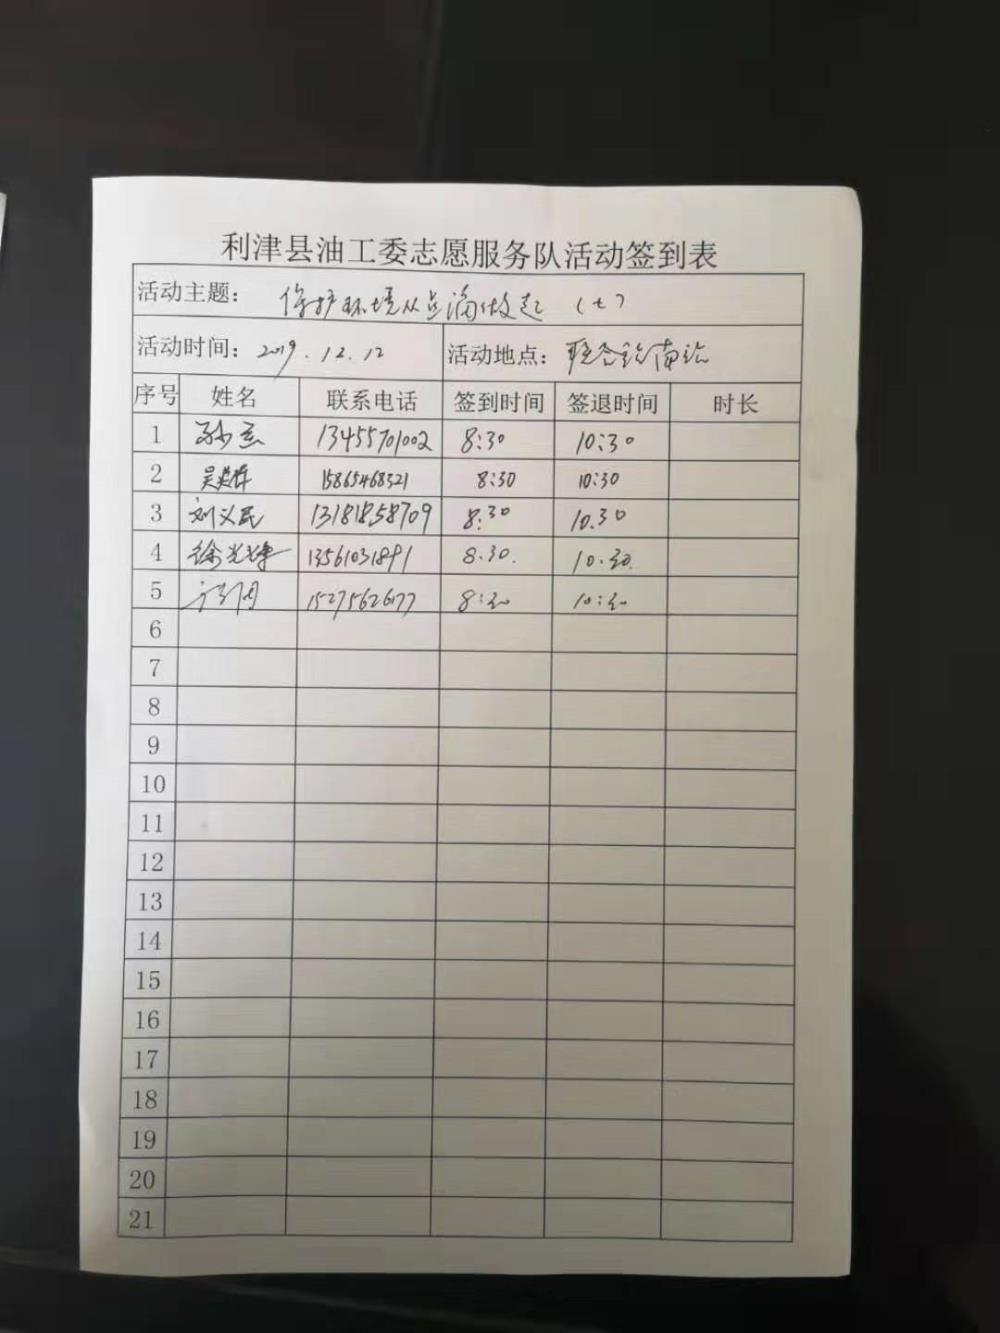 利津县油工委志愿服务队活动签到表
活动主题： 保护环境从点滴做起（七）
活动时间：2019.12.12 活动地点： 联合站南站
序号 姓名 联系电话 签到时间 签退时间 时长
1 13455701002 8:30 10:30
2 15865468321 8:30 10:30
3 刘义民 13181858709 8:30 10.30
4 徐光博 13561031891 8.30. 10.30.
5 15275626177 8:30 10:30
6
7
8
9
10
11
12
13
14
15
16
17
18
19
20
21